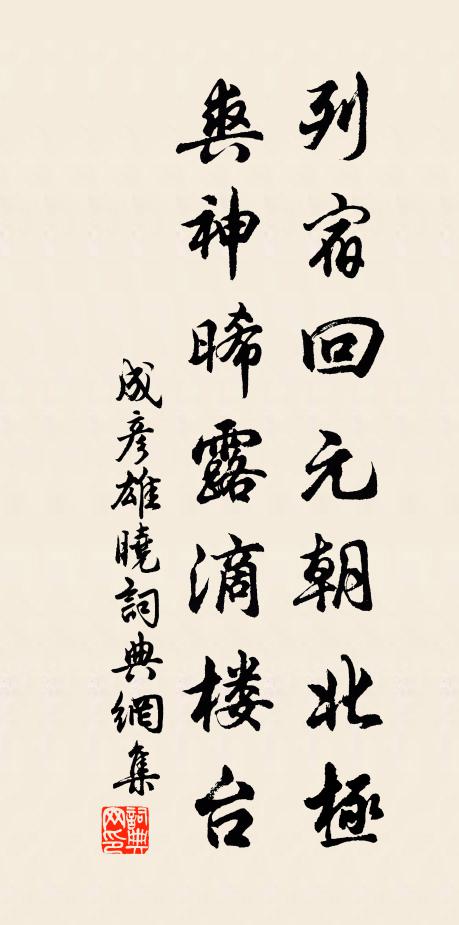 列宿回元朝北極
爽神晞露滴楼台
成彦雄曉詞典網集
詞典网印